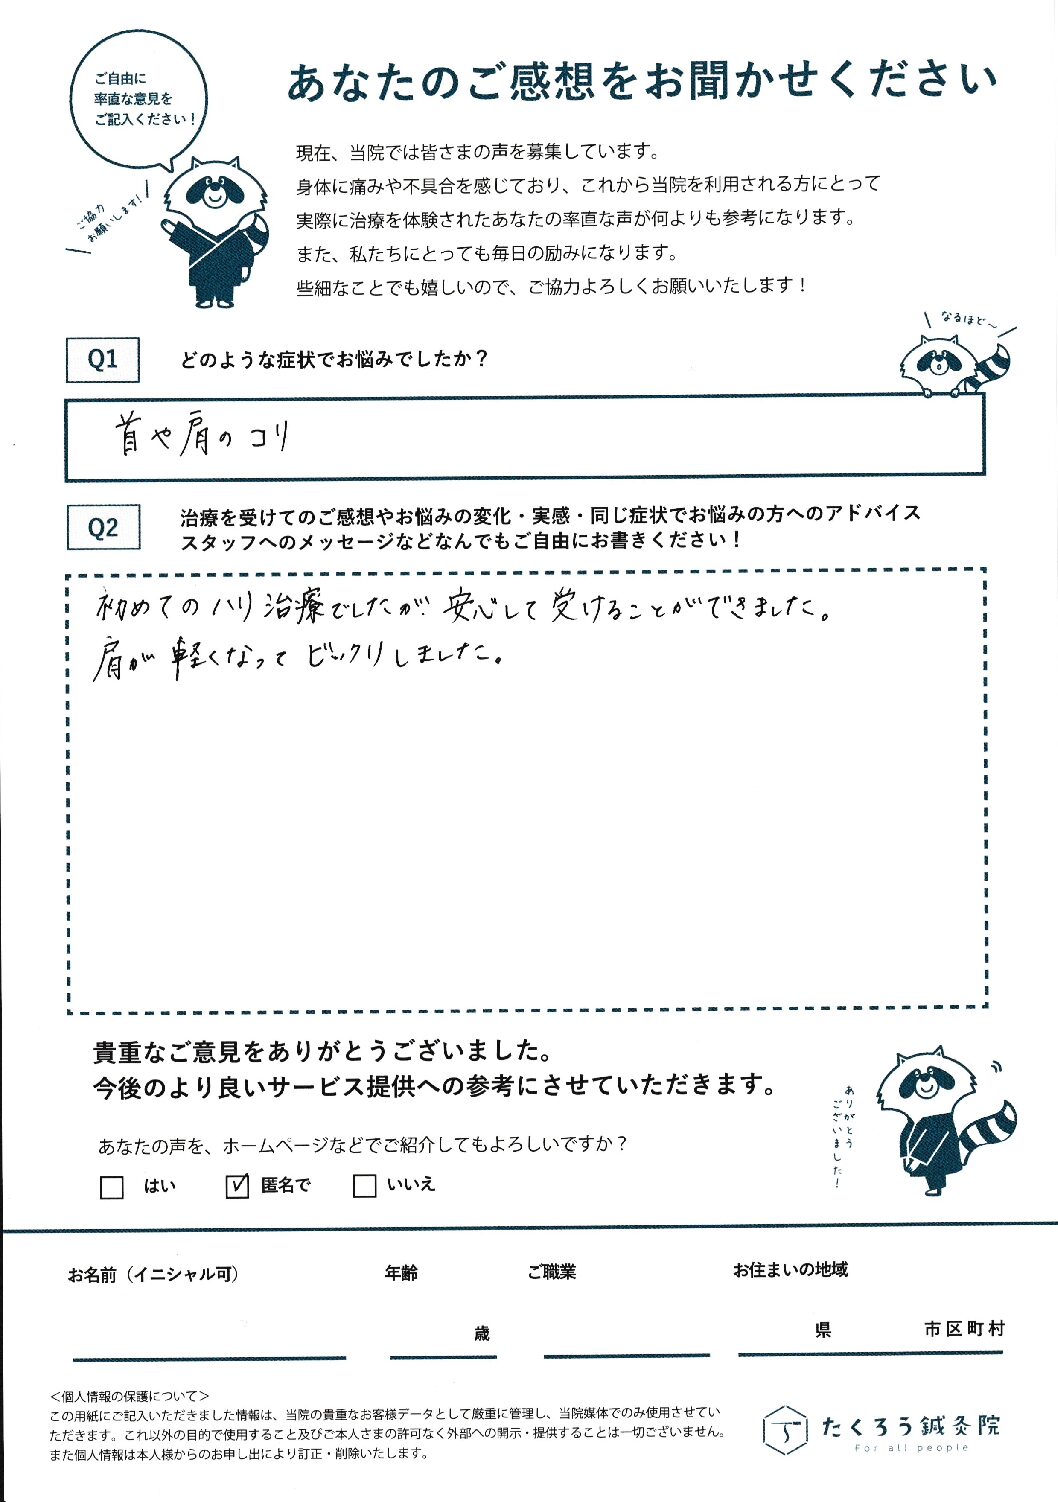 ご自由に
率直な意見を
ご記入ください！
ご協力
お願いします！
あなたのご感想をお聞かせください
現在、当院では皆さまの声を募集しています。
身体に痛みや不具合を感じており、これから当院を利用される方にとって
実際に治療を体験されたあなたの率直な声が何よりも参考になります。
また、私たちにとっても毎日の励みになります。
些細なことでも嬉しいので、ご協力よろしくお願いいたします！
なるほど〜
Q1 どのような症状でお悩みでしたか？
首や肩のコリ
Q2 治療を受けてのご感想やお悩みの変化・実感・同じ症状でお悩みの方へのアドバイス
スタッフへのメッセージなどなんでもご自由にお書きください！
初めてのハリ治療でしたが、安心して受けることができました。
肩が軽くなってビックリしました。
貴重なご意見をありがとうございました。
今後のより良いサービス提供への参考にさせていただきます。
ありがとう
ございました！
あなたの声を、ホームページなどでご紹介してもよろしいですか？
はい 匿名で いいえ
お名前（イニシャル可） 年齢 ご職業 お住まいの地域
歳 県 市区町村
＜個人情報の保護について＞
この用紙にご記入いただきました情報は、当院の貴重なお客様データとして厳重に管理し、当院媒体でのみ使用させてい
ただきます。これ以外の目的で使用すること及びご本人さまの許可なく外部への開示・提供することは一切ございません。
また個人情報は本人様からのお申し出により訂正・削除いたします。
たくろう鍼灸院
For all people